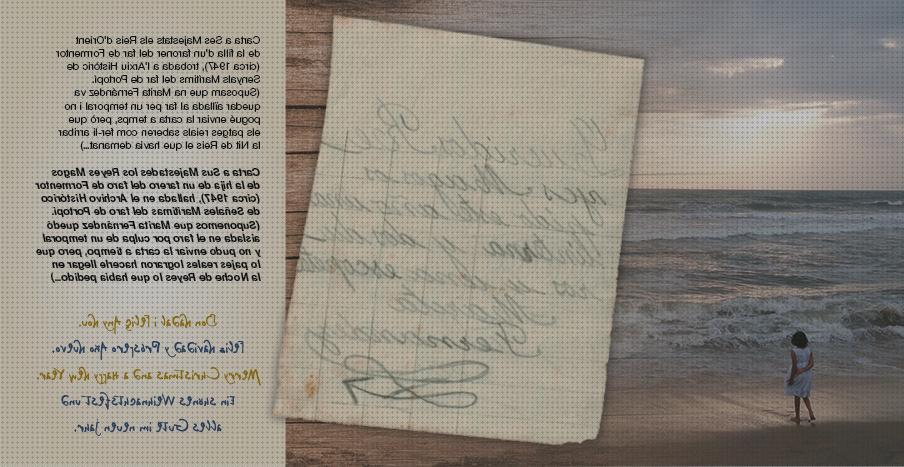 Carta a Ses Majestats els Reis d'Orient
de la filla d'un faroner del far de Formentor
(circa 1947), trobada a l'Arxiu Històric de
Senyals Marítims del far de Portopí.
(Suposam que na Marita Fernández va
quedar aïllada al far per un temporal i no
pogué enviar la carta a temps, però que
els patges reials saberen com fer-li arribar
la Nit de Reis el que havia demanat...)
Carta a Sus Majestades los Reyes Magos
de la hija de un farero del faro de Formentor
(circa 1947), hallada en el Archivo Histórico
de Señales Marítimas del faro de Portopí.
(Suponemos que Marita Fernández quedó
aislada en el faro por culpa de un temporal
y no pudo enviar la carta a tiempo, pero que
lo pajes reales lograron hacerle llegar en
la Noche de Reyes lo que había pedido...)
Bon Nadal i Feliç Any Nou.
Feliz Navidad y Próspero Año Nuevo.
Merry Christmas and a Happy New Year.
Ein shönes Weihnachtsfest und
alles Gute im neuen Jahr.
Queridos Reyes Magos
este año una
linterna y
escopeta
Marita
Fernandez